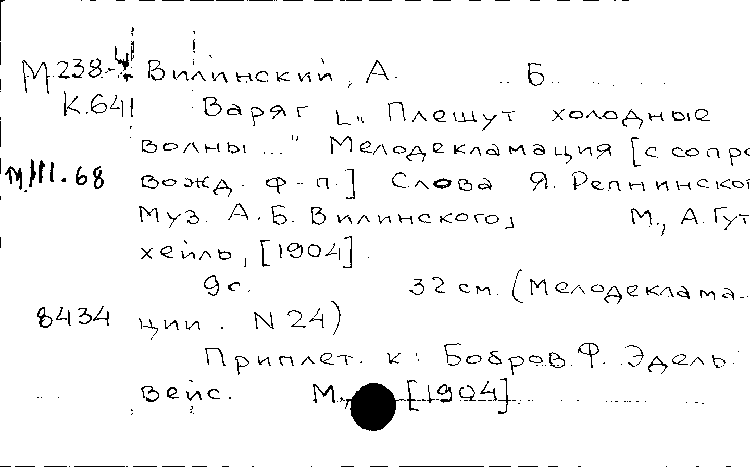 М 238-4 Вилинский, А. Б.
К.641 Варяг [„Плещут холодные
волны..." Мелодекламация [с сопро
М III.68 вожд. ф-п.] Слова Я. Репнинског
Муз. А.Б. Вилинского, М., А. Гут
хейль, [1904].
9 с. 32 см. (Мелодеклама-
8434 ции. N 24)
Приплет. к: Бобров Ф. Эдель
вейс. М., [1904]